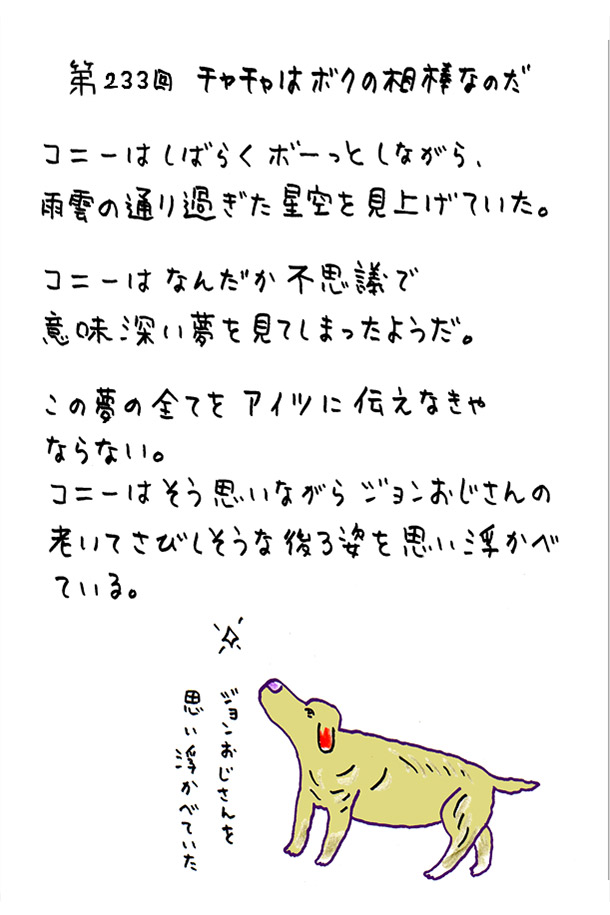 第233回 チャチャはボクの相棒なのだ
コニーはしばらくボーっとしながら、
雨雲の通り過ぎた星空を見上げていた。
コニーはなんだか不思議で
意味深い夢を見てしまったようだ。
この夢の全てをアイツに伝えなきゃ
ならない。
コニーはそう思いながらジョンおじさんの
老いてさびしそうな後ろ姿を思い浮かべ
ている。
ジョンおじさんを
思い浮かべていた